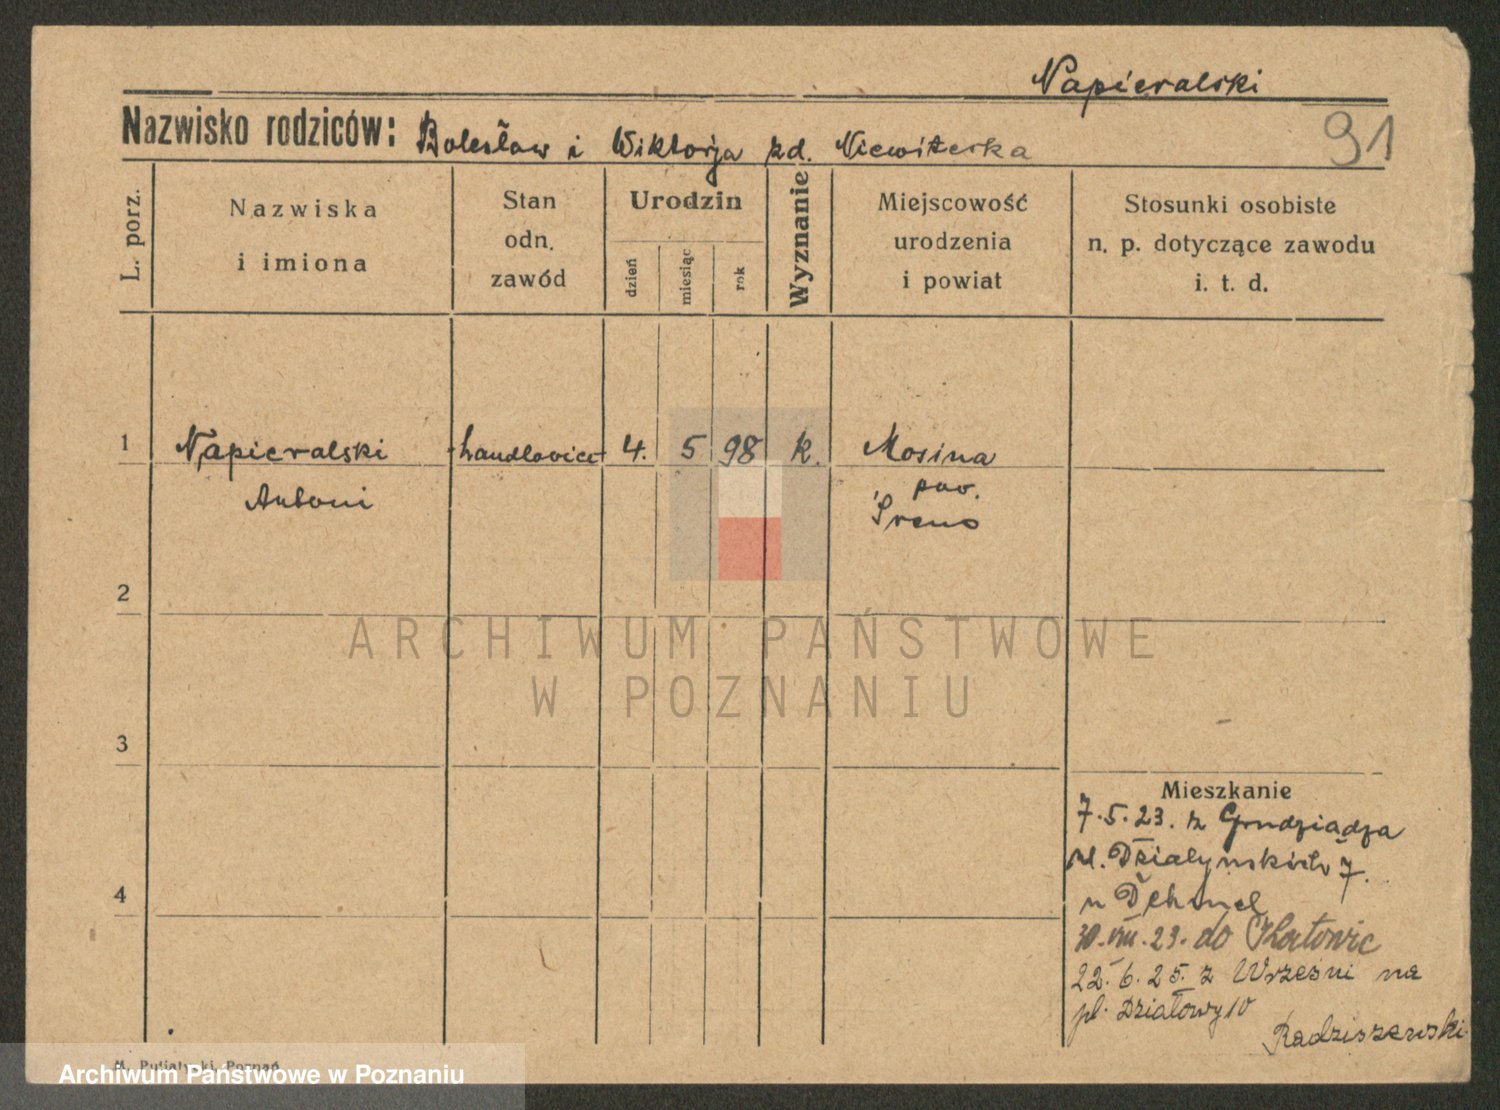 Napieralski
Nazwisko rodziców: Bolesław i Wiktorja zd. Niewiterka
91
L. porz.
Nazwiska
i imiona
Stan
odn.
zawód
Urodzin
dzień
miesiąc
rok
Wyznanie
Miejscowość
urodzenia
i powiat
Stosunki osobiste
n. p. dotyczące zawodu
i. t. d.
1
Napieralski
Antoni
handlowiec
4.
5
98
k.
Mosina
pow.
Śrem
2
3
4
ARCHIWUM PAŃSTWOWE
W POZNANIU
Mieszkanie
7.5.23. z Grudziądza
ul. Działyńskich 7.
u Dehmel
30.VIII.23. do Katowic
22.6.25. z Wrześni na
pl. Działowy 10
Radziszewski
Poznań
Archiwum Państwowe w Poznaniu